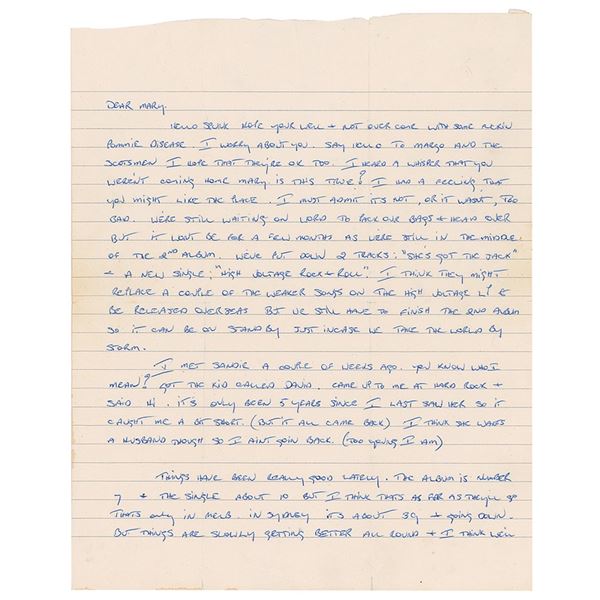 DEAR MARY.
HELLO SPUNK HOPE YOUR WELL + NOT OVER COME WITH SOME
POMMIE DISEASE. I WORRY ABOUT YOU. SAY HELLO TO MARGO AND THE
SCOTSMEN I HOPE THAT THEY'RE OK TOO. I HEARD A WHISPER THAT YOU
WEREN'T COMING HOME MARY IS THIS TRUE? I HAD A FEELING THAT
YOU MIGHT LIKE THE PLACE. I MUST ADMIT IT'S NOT, OR IT WASN'T, TOO
BAD. WE'RE STILL WAITING ON WORD TO PACK OUR BAGS + HEAD OVER
BUT IT WONT BE FOR A FEW MONTHS AS WE'RE STILL IN THE MIDDLE
OF THE 2ND ALBUM. WE'VE PUT DOWN 2 TRACKS: "SHE'S GOT THE JACK"
+ A NEW SINGLE: "HIGH VOLTAGE ROCK + ROLL". I THINK THEY MIGHT
REPLACE A COUPLE OF THE WEAKER SONGS ON THE HIGH VOLTAGE LP &
BE RELEASED OVERSEAS BUT WE STILL HAVE TO FINISH THE 2ND ALBUM
SO IT CAN BE ON STAND BY JUST INCASE WE TAKE THE WORLD BY
STORM.
I MET A COUPLE OF WEEKS AGO. YOU KNOW WHO I
MEAN? GOT THE KID CALLED DAVID. CAME UP TO ME AT HARD ROCK +
SAID HI. IT'S ONLY BEEN 5 YEARS SINCE I LAST SAW HER SO IT
CAUGHT ME A BIT SHORT. (BUT IT ALL CAME BACK) I THINK SHE WANTS
A HUSBAND THOUGH SO I AINT GOIN BACK. (TOO YOUNG I AM)
THINGS HAVE BEEN REALLY GOOD LATELY. THE ALBUM IS NUMBER
7 + THE SINGLE ABOUT 10 BUT I THINK THATS AS FAR AS THEY'LL GO
THATS ONLY IN MELB. IN SYDNEY ITS ABOUT 39 + GOING DOWN.
BUT THINGS ARE SLOWLY GETTING BETTER ALL ROUND + I THINK WE'LL